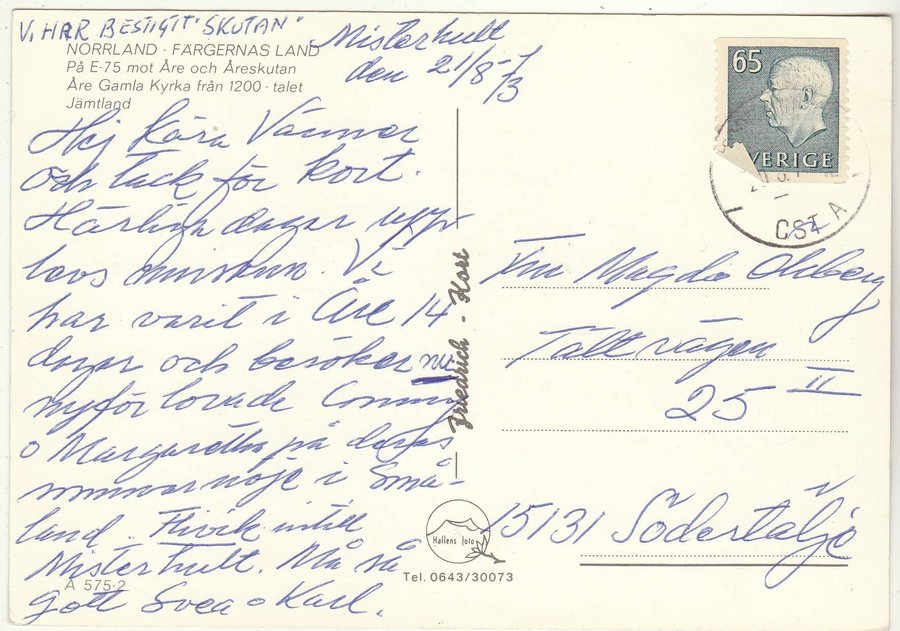 Vi HAR BESTIGIT "SKUTAN"
NORRLAND - FÄRGERNAS LAND
På E-75 mot Åre och Åreskutan
Åre Gamla Kyrka från 1200 - talet
Jämtland
Misterhult
den 21/8-73
Hej Kära Vänner
och tack för kort.
Härliga dagar upp
levsminsann. Vi
har varit i Åre 14
dagar och besöker nu
nyförlovade Conny
o Margaretha på deras
sommarnöje i Små-
land. Flivik intill
Misterhult. Må så
gott Svea o Karl.
A 575-2
Friedrich - Kort
Hallens foto
Tel. 0643/30073
65
SVERIGE
CST A
Fru Magda Ohlberg
Tältvägen
25 II
15131 Södertälje